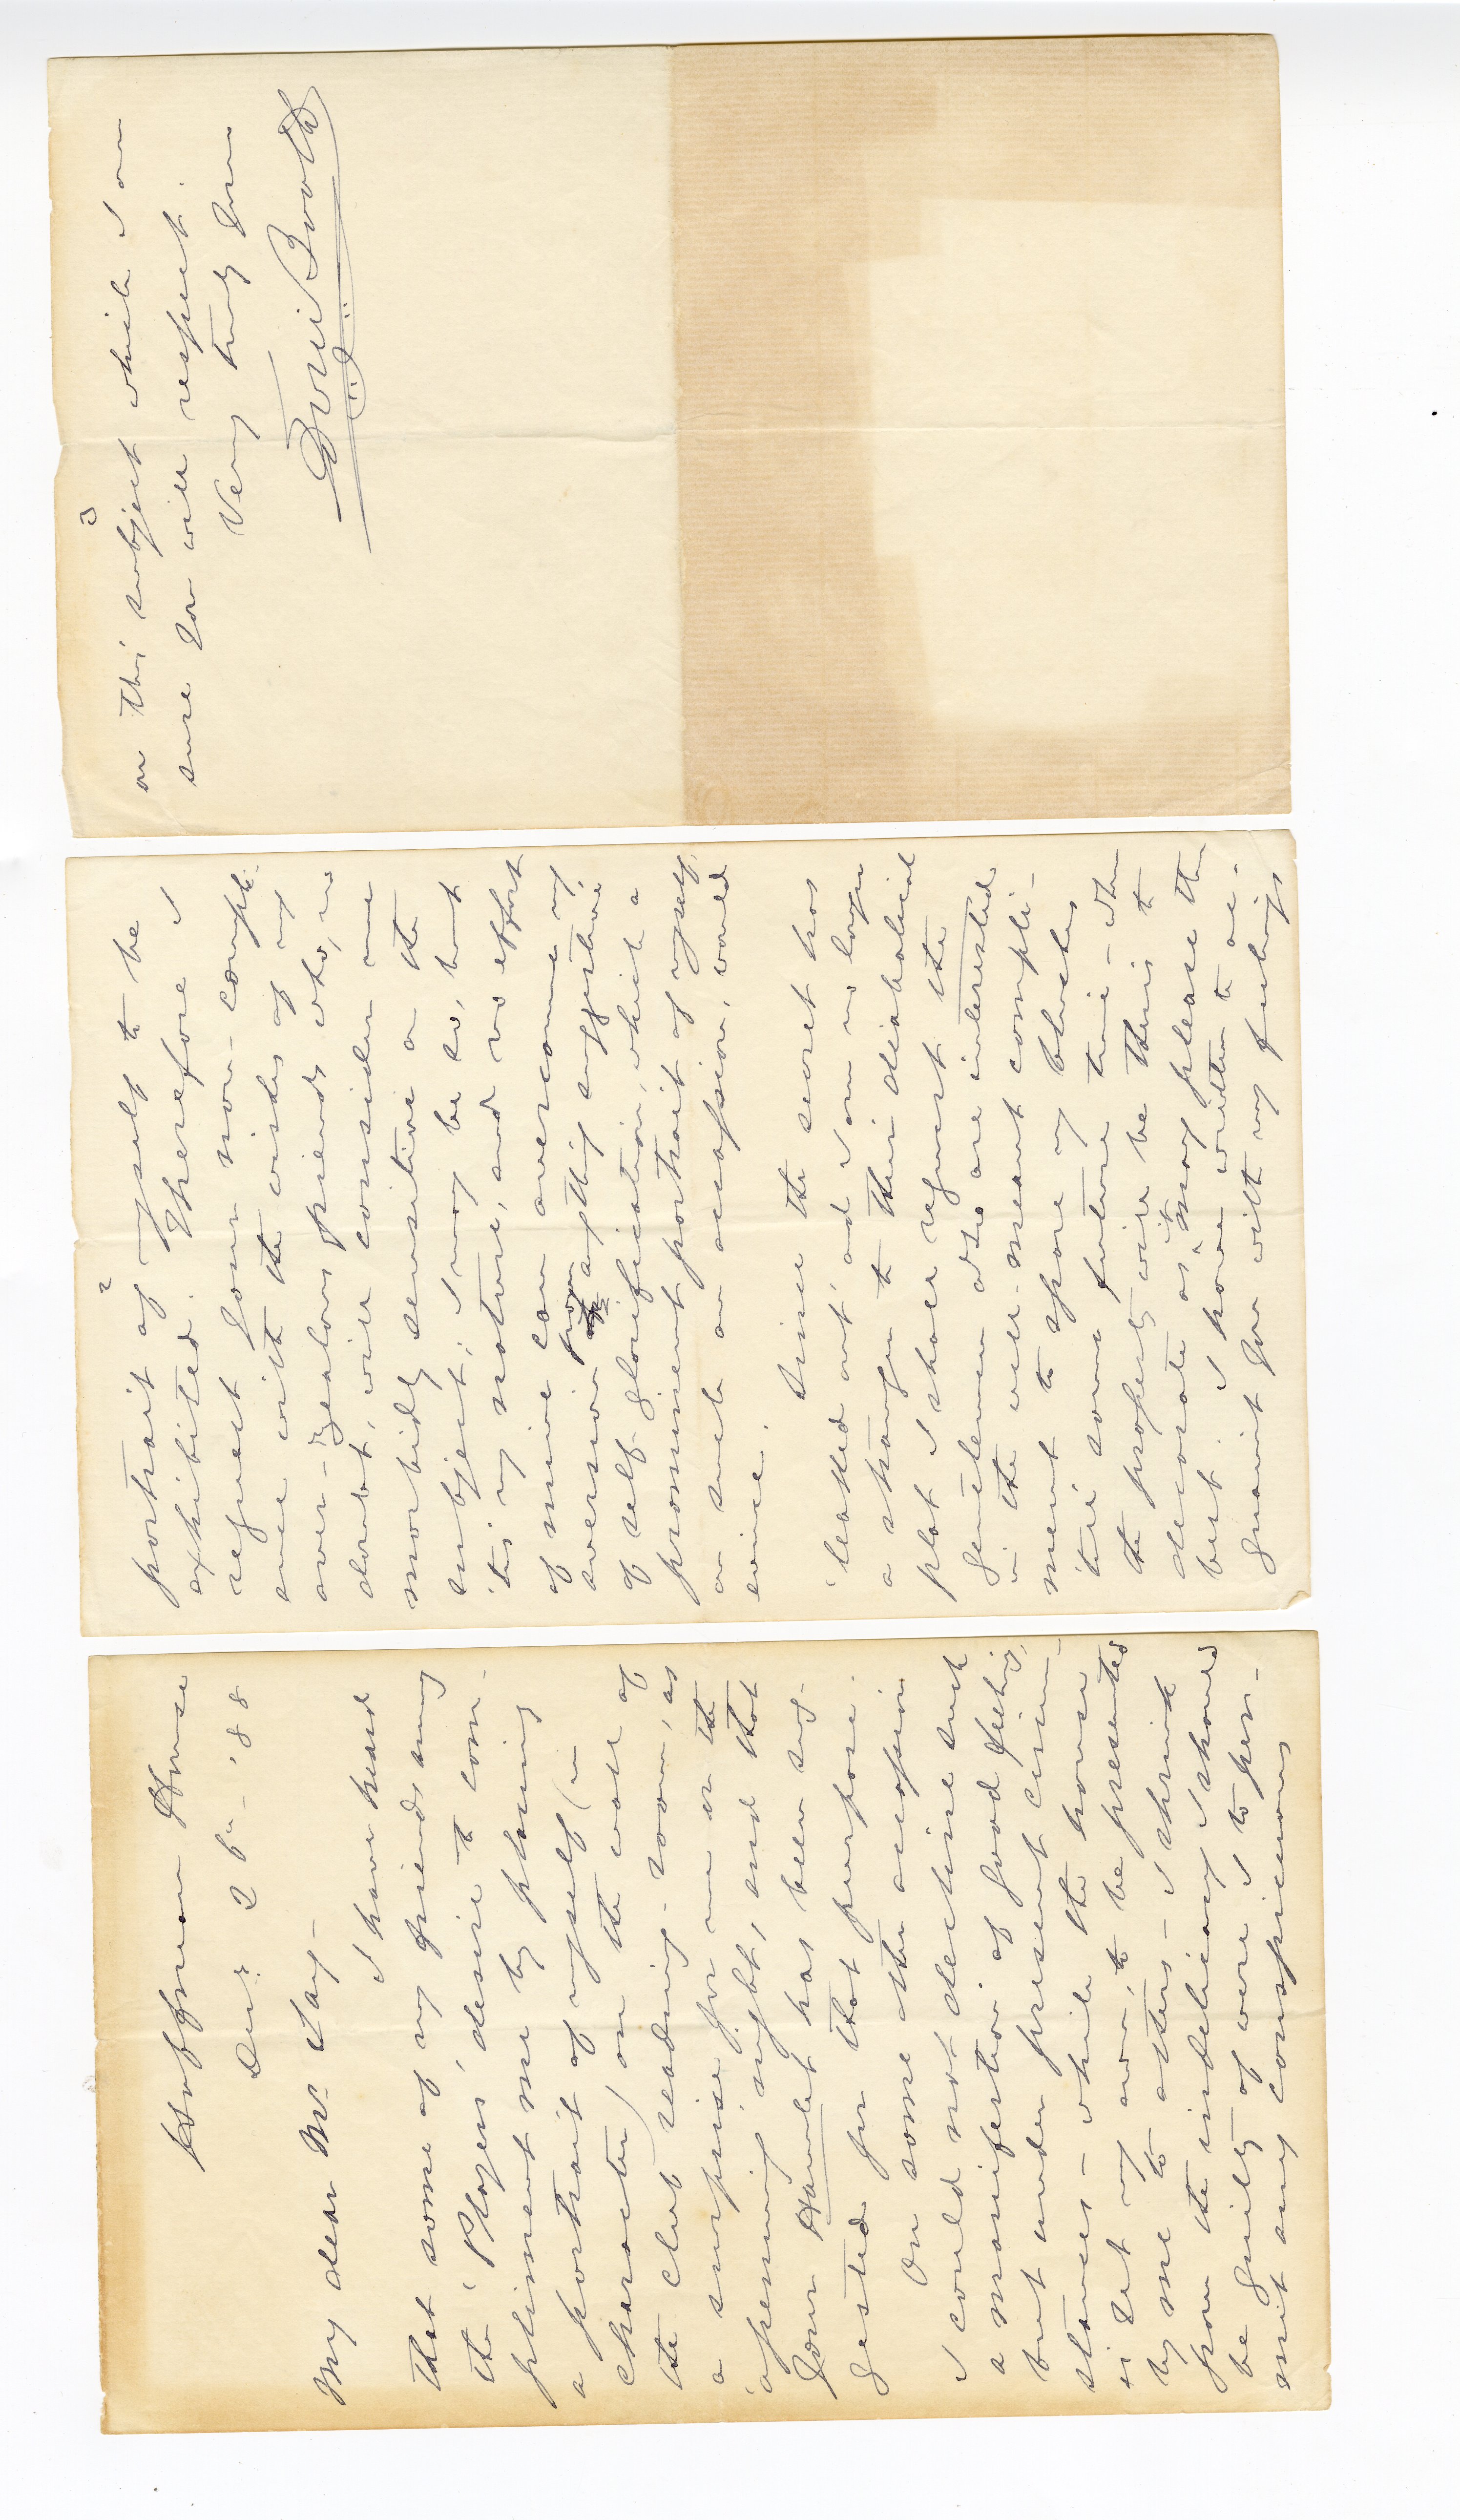 Hoffman House
Dec: 26 - '88
My dear Mr Day -
I have heard
that some of my friends among
the 'Players,' desire to com-
pliment me by placing
a portrait of myself (in
character) on the wall of
the club reading-room, as
a surprise for me on the
'opening' night, and that
your Hamlet has been sug-
gested for that purpose.
On some other occasion
I could not decline such
a manifestation of good feeling,
but under present circum-
stances - while the house
is yet my own, to be presented
by me to others - I shrink
from the indelicacy I should
be guilty of were I to per-
mit any conspicuous
2
portrait of myself to be
exhibited. Therefore I
request your non-compli-
ance with the wishes of my
over-zealous friends who, no
doubt, will consider me
morbidly sensitive on the
subject; I may be so, but
'tis my nature, and no effort
of mine can overcome my
aversion from any thing suggestive
of self-glorification, which a
prominent portrait of myself,
on such an occasion, would
evince.
Since the secret has
'leaked out', and I am no longer
a stranger to their diabolical
plot I shall request the
gentlemen who are interested
in the well-meant compli-
ment to spare my blushes
till some future time - when
the property will be theirs to
decorate as it may please them
best. I have written to ac-
quaint you with my feelings
3
on this subject which I am
sure you will respect.
Very truly Yours
Edwin Booth